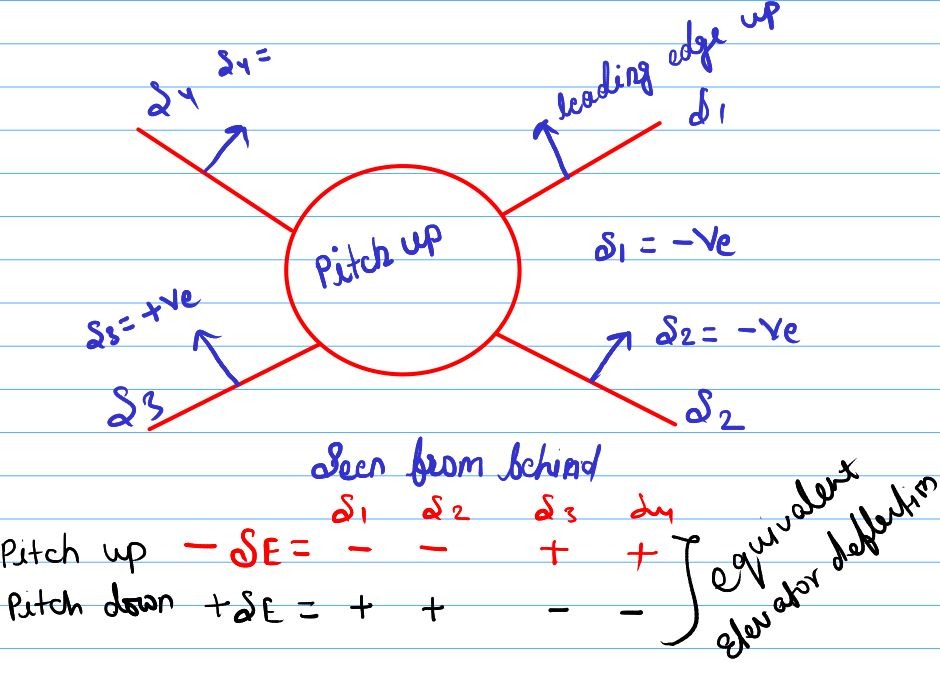 δ4 δ4 =
leading edge up
δ1
Pitch up
δ1 = -ve
δ3 = +ve
δ2 = -ve
δ3
δ2
Seen from behind
δ1 δ2 δ3 δ4
Pitch up - δE = - - + +
Pitch down + δE = + + - -
equivalent
Elevator deflection